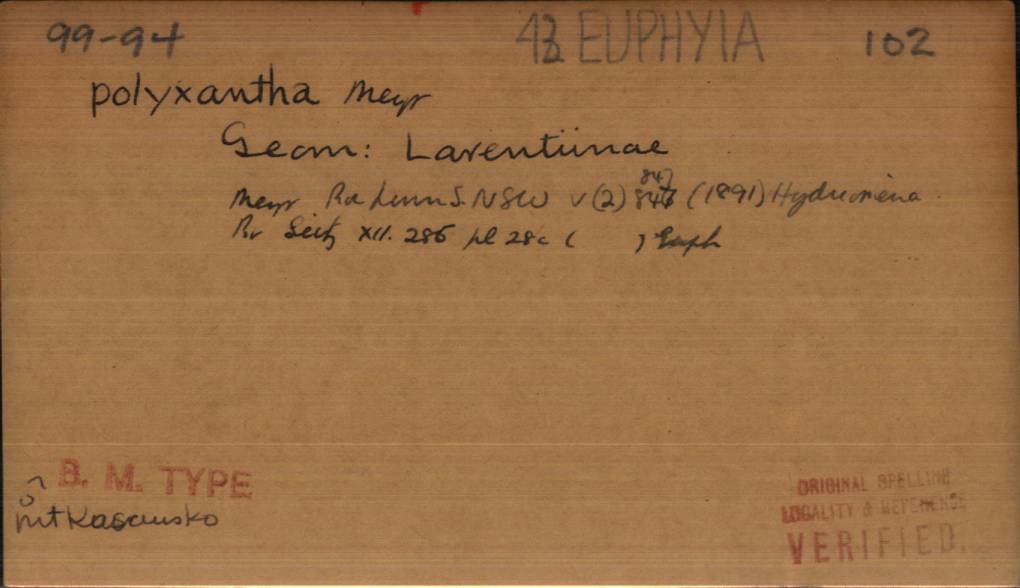 99-94 43 EUPHYIA 102
polyxantha Meyr
Geom: Larentiinae
847
Meyr Linn S. NSW v (2) 846 (1891) Hydriomena
Pr Seitz XII. 286 pl 28c ( ) Euph
B. M. TYPE
Mt Kosciusko
ORIGINAL SPELLING
LOCALITY & REFERENCE
VERIFIED.